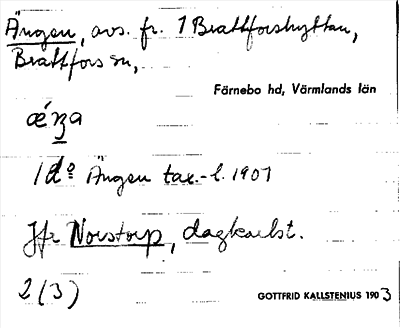 Ängen, avs. fr. 1 Brattforshyttan,
Brattfors sn,
Färnebo hd, Värmlands län
1 do Ängen tax.-l. 1907
Jfr Norstorp, dagkarlst.
2 (3)
GOTTFRID KALLSTENIUS 1903